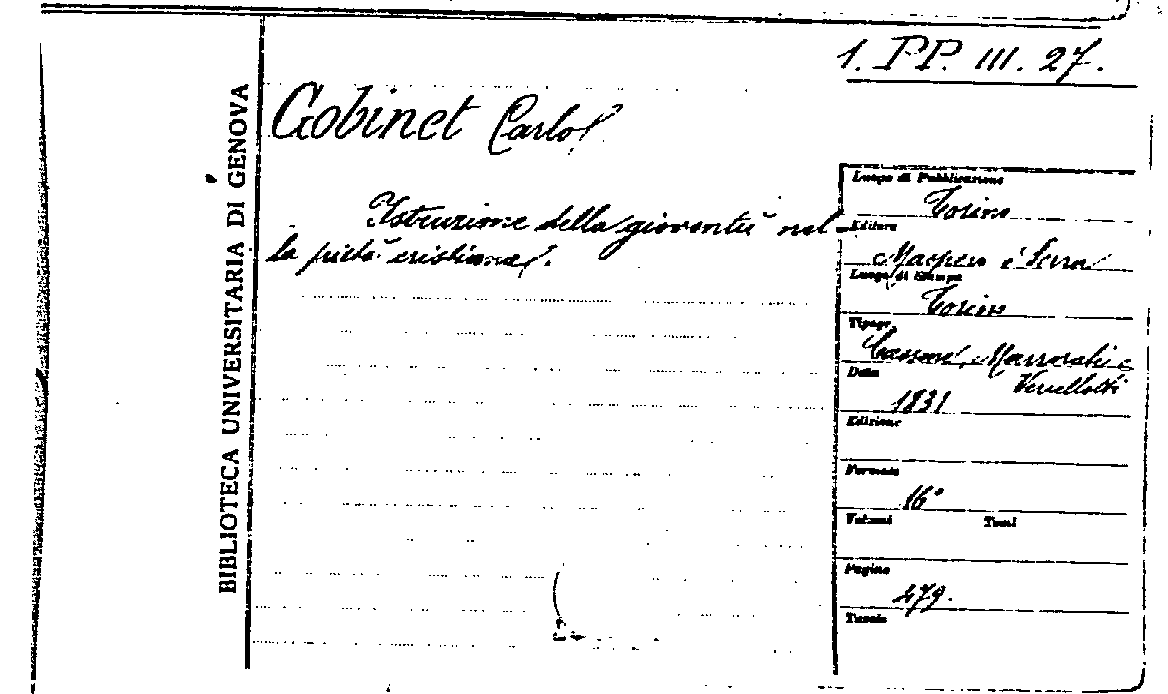 1. PP. III. 27.
BIBLIOTECA UNIVERSITARIA DI GENOVA
Gobinet Carlo
Istruzione della gioventù nel-
la pietà cristiana.
Luogo di Pubblicazione
Torino
Editore
Maspero e Serra
Luogo di Stampa
Torino
Tipogr.
Cassone, Marzorati e
Vercellotti
Data
1831
Edizione
Formato
16°
Volumi Tomi
Pagine
279.
Tavole